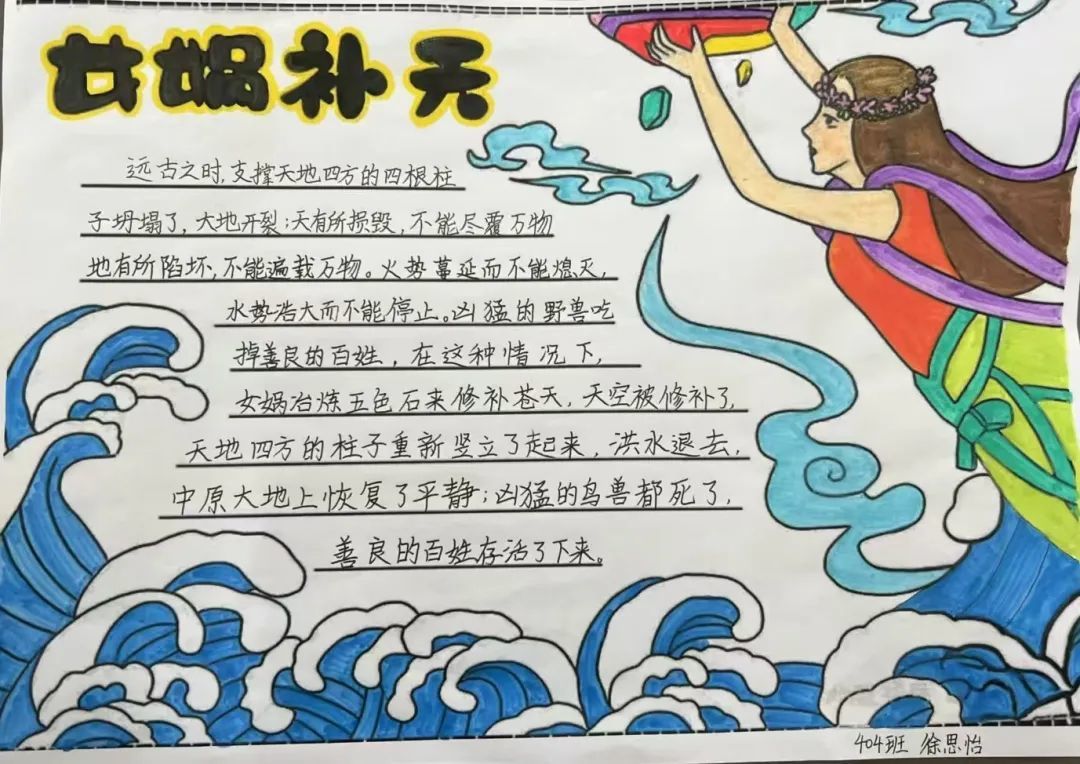 女娲补天
远古之时,支撑天地四方的四根柱
子坍塌了,大地开裂;天有所损毁,不能尽覆万物
地有所陷坏,不能遍载万物。火势蔓延而不能熄灭,
水势浩大而不能停止。凶猛的野兽吃
掉善良的百姓,在这种情况下,
女娲冶炼五色石来修补苍天,天空被修补了,
天地四方的柱子重新竖立了起来,洪水退去,
中原大地上恢复了平静;凶猛的鸟兽都死了,
善良的百姓存活了下来。
404班 徐思怡